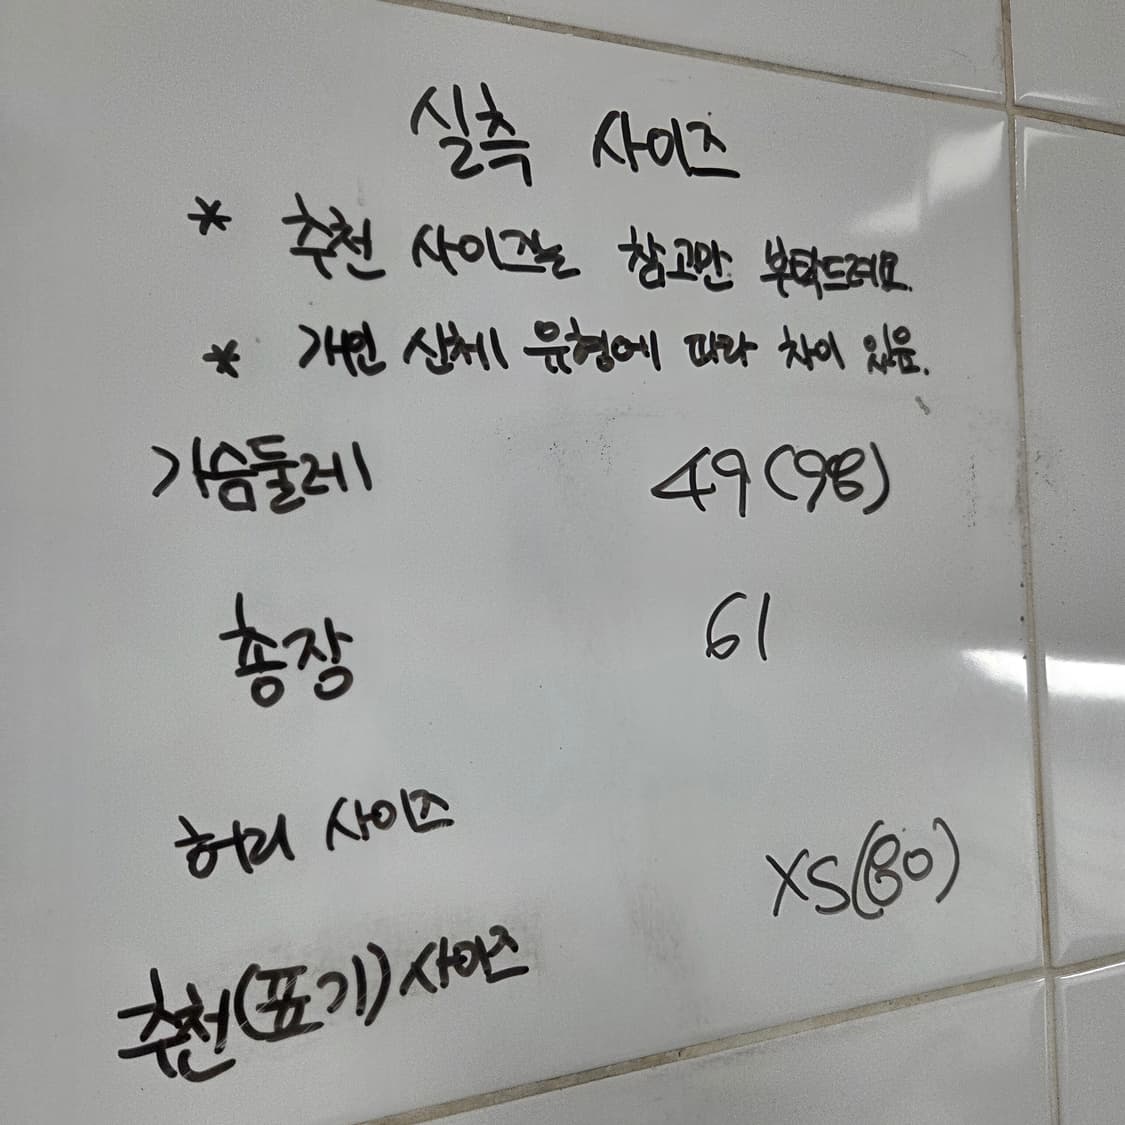 실측 사이즈
* 추천 사이즈는 참고만 부탁드려요.
* 개인 신체 유형에 따라 차이 있음.
가슴둘레 49(98)
총장 61
허리 사이즈
XS(80)
추천(표기) 사이즈